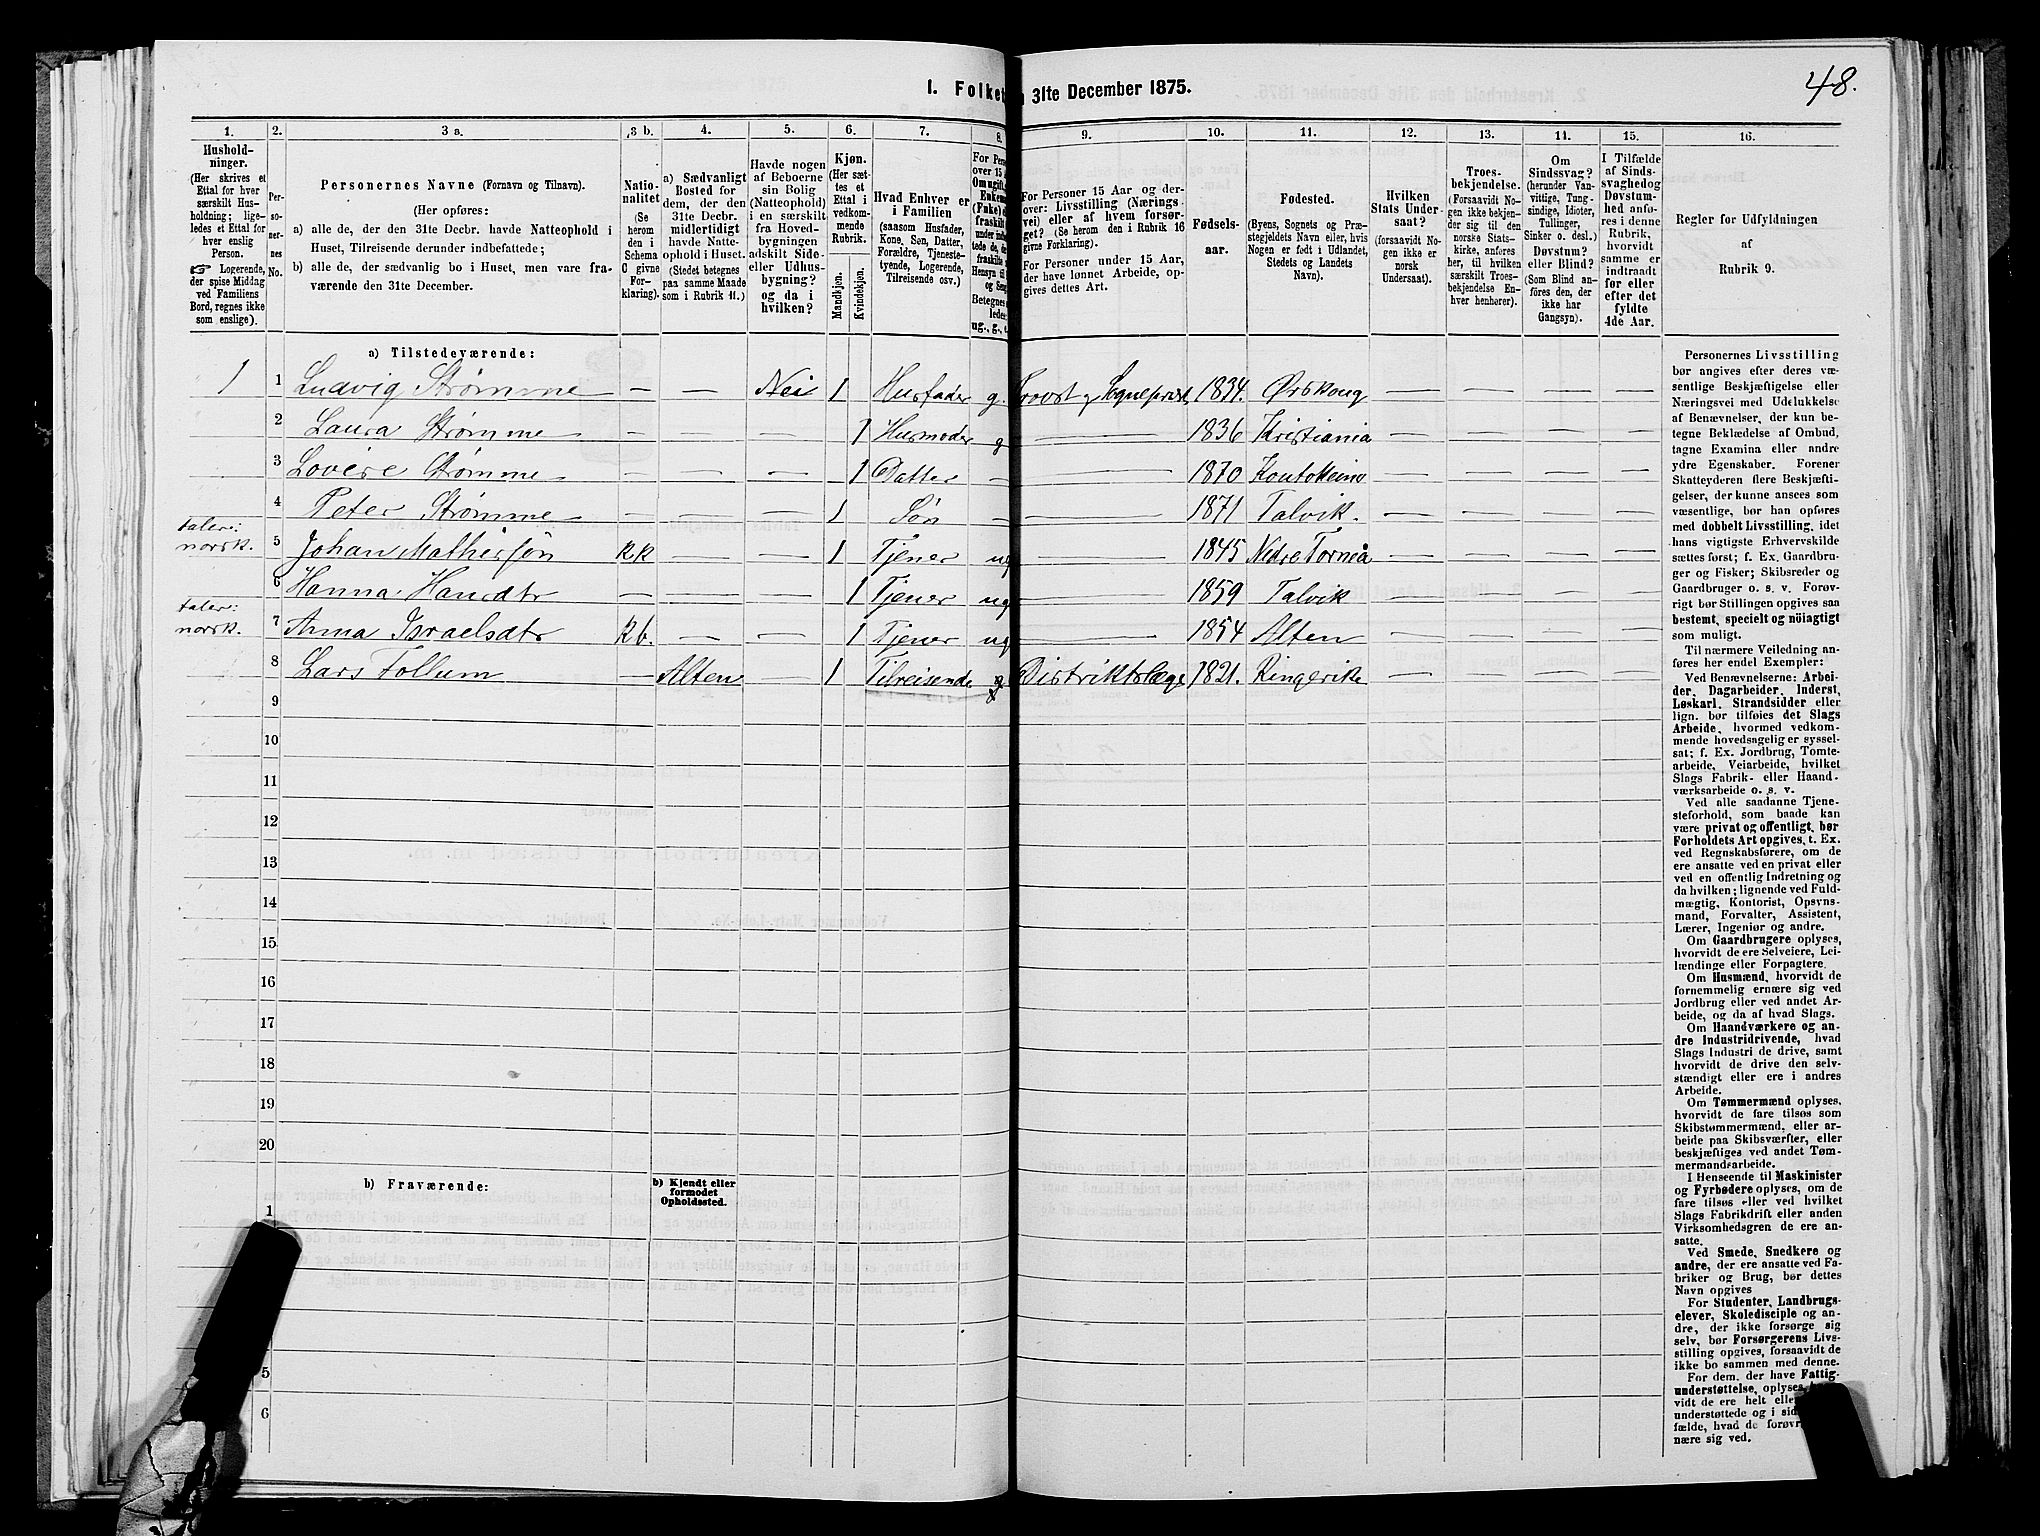 48.
I. Folket
31te December 1875.
1. 2. 3 a. 3 b. 4. 5. 6. 7. 8. 9. 10. 11. 12. 13. 14. 15. 16.
Hushold-
ninger.
(Her skrives et
Ettal for hver
særskilt Hus-
holdning; lige-
ledes et Ettal for
hver enslig
Person.
☞ Logerende,
der spise Middag
ved Familiens
Bord, regnes ikke
som enslige).
Per-
so-
ner-
nes
No.
Personernes Navne (Fornavn og Tilnavn).
(Her opføres:
a) alle de, der den 31te Decbr. havde Natteophold i
Huset, Tilreisende derunder indbefattede;
b) alle de, der sædvanlig bo i Huset, men vare fra-
værende den 31te December.
Natio-
nalitet
(Se
herom
den i
Schema
O givne
For-
klaring).
a) Sædvanligt
Bosted for
dem, der den
31te Decbr.
midlertidigt
havde Natte-
ophold i Huset.
(Stedet betegnes
paa samme Maade
som i Rubrik 11.)
Havde nogen
af Beboerne
sin Bolig
(Natteophold)
i en særskilt
fra Hoved-
bygningen
adskilt Side-
eller Udhus-
bygning?
og da i
hvilken?
Kjøn.
(Her sæt-
tes et
Ettal i
vedkom-
mende
Rubrik.
Mandkjøn.
Kvindekjøn.
Hvad Enhver er
i Familien
(saasom Husfader,
Kone, Søn, Datter,
Forældre, Tjeneste-
tyende, Logerende,
Tilreisende osv.)
For Pers
over 15 a
Omugift,
Enkem
(Fnke)
fraskilt
under
tede de,
fraskilte
Hensyn til
og Seng
Betegnes
ledes:
ug., g.,
For Personer 15 Aar og der-
over: Livsstilling (Nærings-
vei) eller af hvem forsør-
get? (Se herom den i Rubrik 16
givne Forklaring).
For Personer under 15 Aar,
der have lønnet Arbeide, op-
gives dettes Art.
Fødsels-
aar.
Fødested.
(Byens, Sognets og Præ-
stegjeldets Navn eller, hvis
Nogen er født i Udlandet,
Stedets og Landets
Navn).
Hvilken
Stats Under-
saat?
(forsaavidt No-
gen ikke er
norsk
Undersaat).
Troes-
bekjendelse.
(Forsaavidt No-
gen ikke bekjen-
der sig til den
norske Stats-
kirke, anføres
her, til hvilken
særskilt Troes-
bekjendelse En-
hver henhører).
Om
Sindssvag?
(herunder Van-
vittige, Tung-
sindige, Idioter,
Tullinger,
Sinker o. desl.)
Døvstum?
eller Blind?
(Som Blind an-
føres den, der
ikke har
Gangsyn).
I Tilfælde
af Sinds-
svaghed og
Døvstum-
hed anfø-
res i denne
Rubrik,
hvorvidt
samme er
indtraadt
før eller
efter det
fyldte
4de Aar.
Regler for Udfyldningen
af
Rubrik 9.
a) Tilstedeværende:
1 1 Ludvig Strømme — — Nei 1 Husfader g. Provst og Sogneprest 1834. Ørskoug — — — —
2 Laura Strømme — — — 1 Husmoder g — 1836 Kristiania — — — —
3 Lovise Strømme — — — 1 Datter — — 1870 Koutokeino — — — —
4 Peter Strømme — — — 1 Søn — — 1871 Talvik. — — — —
taler:
norsk.
5 Johan Mathiesøn kk — — 1 Tjener ug — 1845 Nedre Torneå — — — —
6 Hanna Hansdtr — — — 1 Tjener ug — 1859 Talvik — — — —
taler:
norsk.
7 Anna Israelsdtr kb. — — 1 Tjener ug — 1854 Alten — — — —
8 Lars Follum — Alten — 1 Tilreisende g Distriktslæge 1821. Ringerike — — — —
9
10
11
12
13
14
15
16
17
18
19
20
b) Fraværende:
b) Kjendt eller
formodet
Opholdssted.
1
5
6
Personernes Livsstilling
bør angives efter deres væ-
sentlige Beskjæftigelse eller
Næringsvei med Udelukkelse
af Benævnelser, der kun be-
tegne Beklædelse af Ombud,
tagne Examina eller andre
ydre Egenskaber. Forener
Skatteyderen flere Beskjæfti-
gelser, der kunne ansees som
væsentlige, bør han opføres
med dobbelt Livsstilling, idet
hans vigtigste Erhvervskilde
sættes først; f. Ex. Gaardbru-
ger og Fisker; Skibsreder og
Gaardbruger o. s. v. Forøv-
rigt bør Stillingen opgives saa
bestemt, specielt og nöiagtigt
som muligt.
Til nærmere Veiledning an-
føres her endel Exempler:
Ved Benævnelserne: Arbei-
der, Dagarbeider, Inderst,
Løskarl, Strandsidder eller
lign. bør tilføies det Slags
Arbeide, hvormed vedkom-
mende hovedsagelig er syssel-
sat; f. Ex. Jordbrug, Tomte-
arbeide, Veiarbeide, hvilket
Slags Fabrik- eller Haand-
værksarbeide o. s. v.
Ved alle saadanne Tjene-
steforhold, som baade kan
være privat og offentligt, bør
Forholdets Art opgives, t. Ex.
ved Regnskabsførere, om de
ere ansatte ved en privat eller
ved en offentlig Indretning og
da hvilken; lignende ved Fuld-
mægtig, Kontorist, Opsyns-
mand, Forvalter, Assistent,
Lærer, Ingeniør og andre.
Om Gaardbrugere oplyses,
hvorvidt de ere Selveiere, Lei-
lændinge eller Forpagtere.
Om Husmænd, hvorvidt de
fornemmelig ernære sig ved
Jordbrug eller ved andet Ar-
beide, og da af hvad Slags.
Om Haandværkere og an-
dre Industridrivende, hvad
Slags Industri de drive, samt
hvorvidt de drive den selv-
stændigt eller ere i andres
Arbeide.
Om Tømmermænd oplyses,
hvorvidt de fare tilsøs som
Skibstømmermænd, eller ar-
beide paa Skibsværfter, eller
beskjæftiges ved andet Tøm-
mermandsarbeide.
I Henseende til Maskinister
og Fyrbødere oplyses, om de
fare tilsøs eller ved hvilket
Slags Fabrikdrift eller anden
Virksomhedsgren de ere an-
satte.
Ved Smede, Snedkere og
andre, der ere ansatte ved Fa-
briker og Brug, bør dettes
Navn opgives
For Studenter, Landbrugs-
elever, Skoledisciple og an-
dre, der ikke forsørge sig
selv, bør Forsørgerens Livs-
stilling opgives, forsaavidt de
ikke bo sammen med denne.
For dem, der have Fattig-
understøttelse, oplyses
vidt de ere helt elle
understøttede og i sid
fælde, hvad de forøv
nære sig ved.